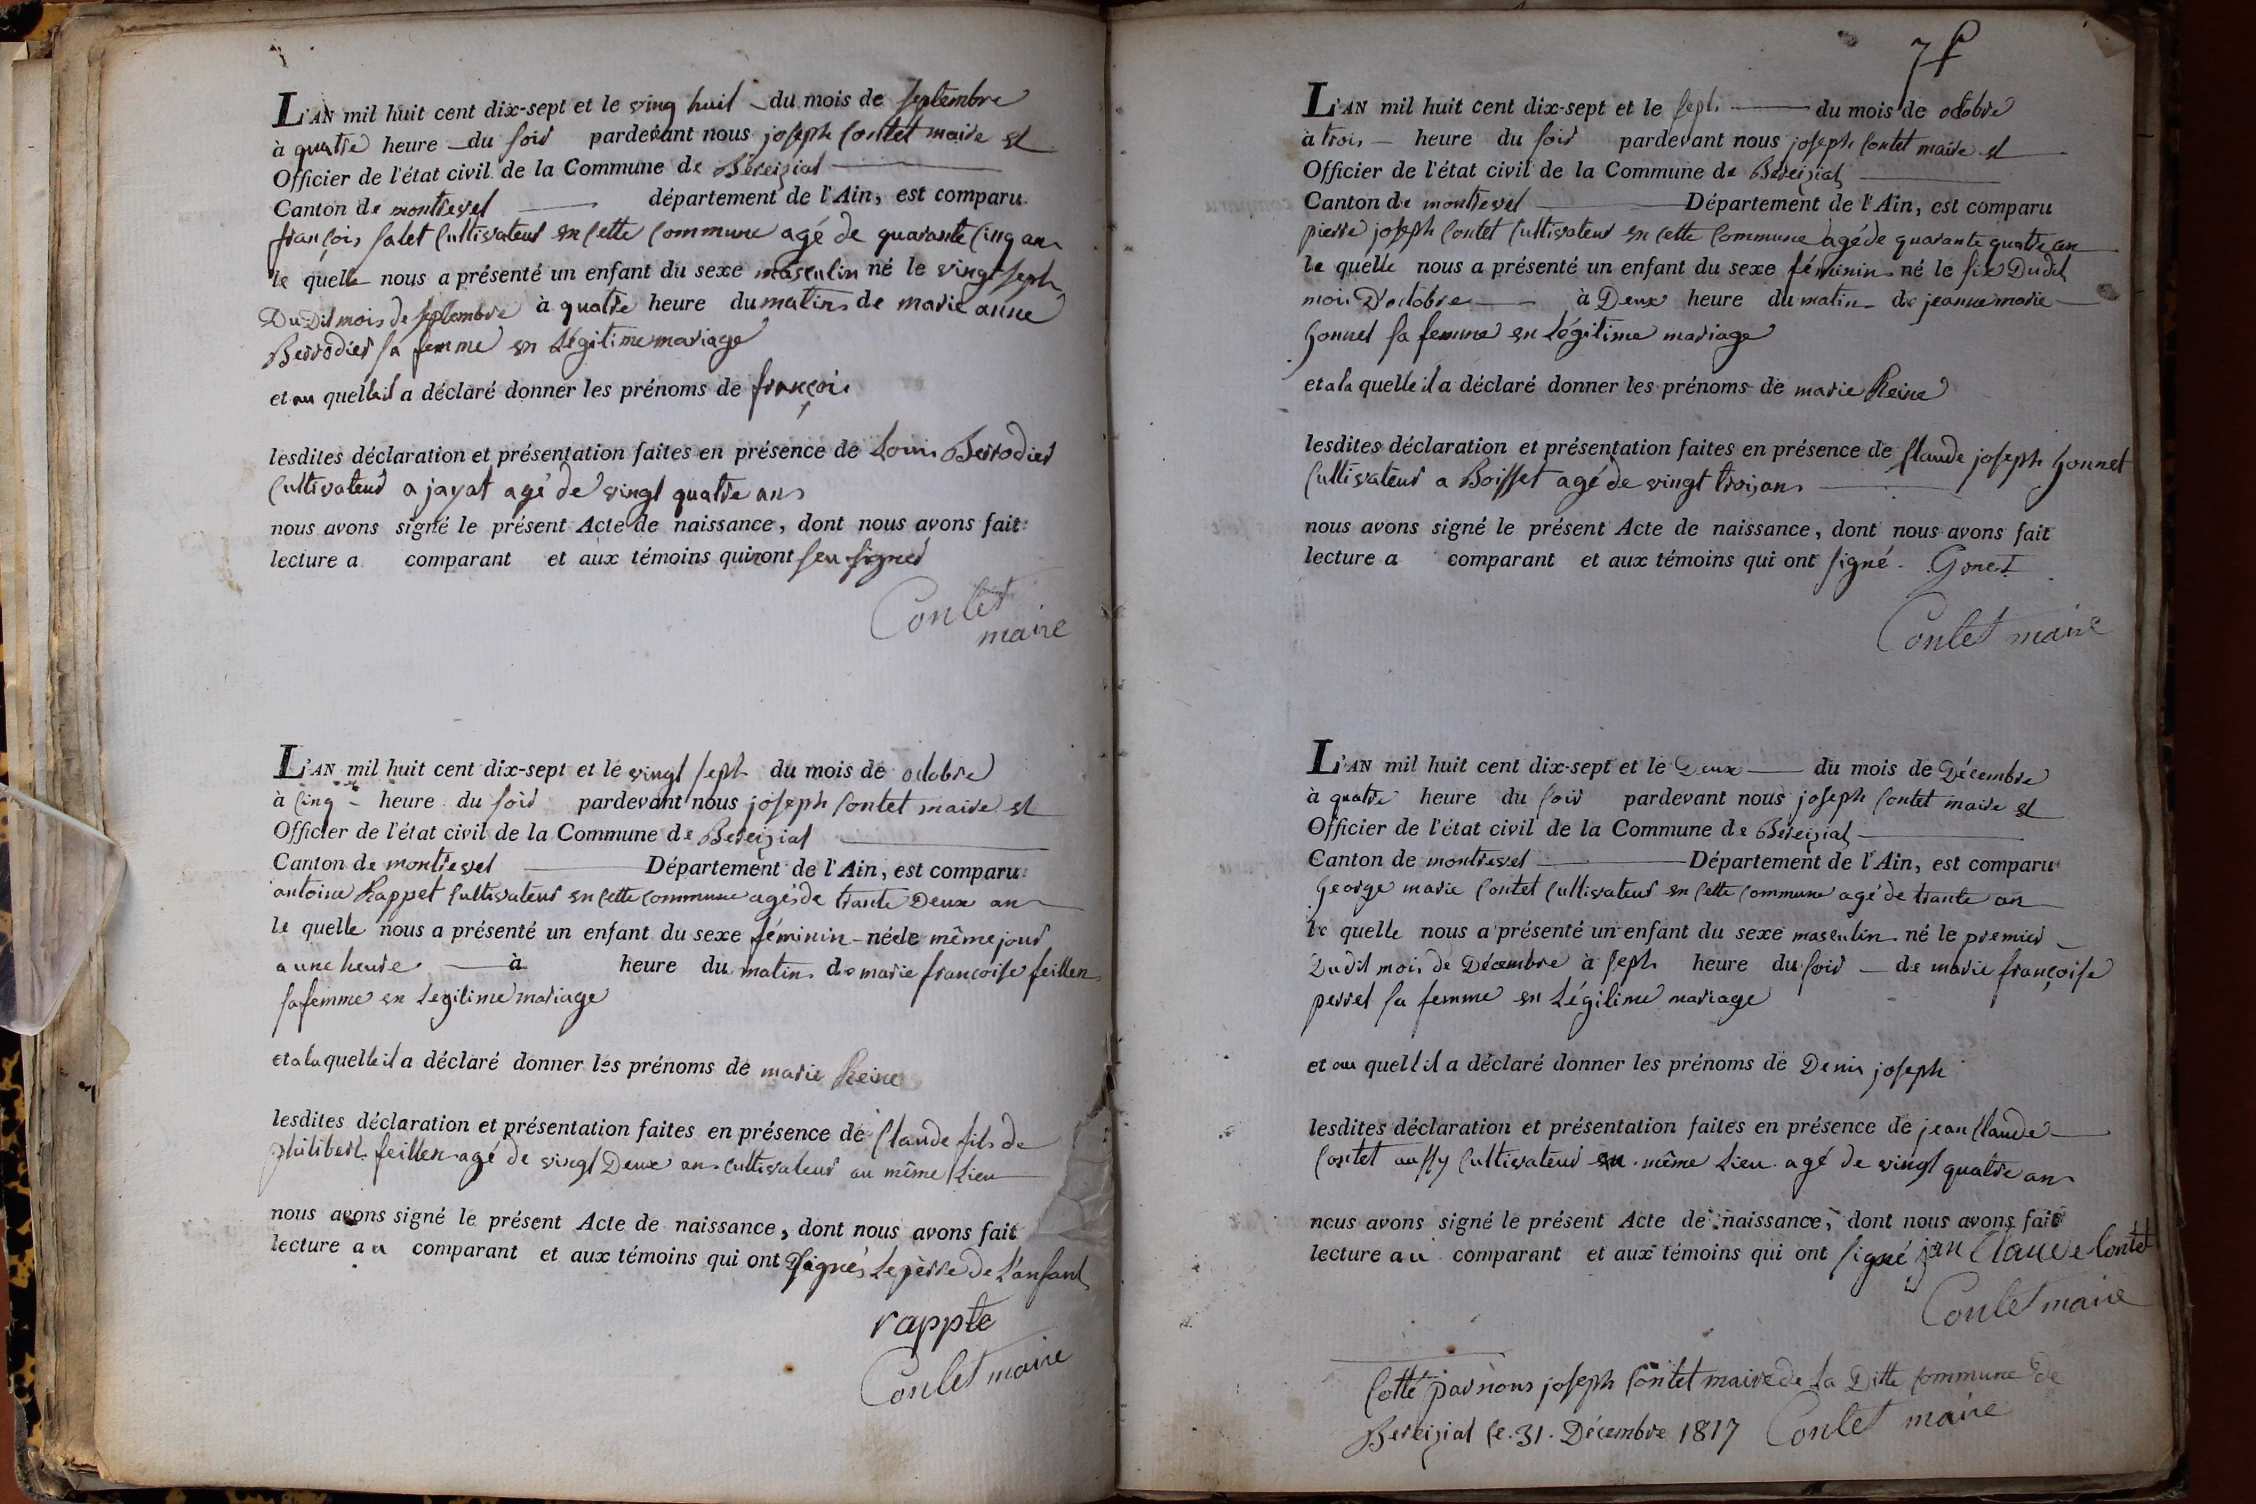 L'AN mil huit cent dix-sept et le ving huit du mois de septembre
à quatre heure du soir pardevant nous joseph Contet maire et
Officier de l'état civil de la Commune de Béreiziat
Canton de montrevel département de l'Ain, est comparu
françois salet Cultivateur en Cette Commune agé de quarante Cinq an
le quelle nous a présenté un enfant du sexe masculin né le vingt sept
Du Dit mois de septembre à quatre heure du matin de marie anne
Berrodier sa femme en Légitime mariage
et au quelle il a déclaré donner les prénoms de françois
lesdites déclaration et présentation faites en présence de Louis Berrodier
Cultivateur a jayat agé de vingt quatre ans
nous avons signé le présent Acte de naissance, dont nous avons fait
lecture a comparant et aux témoins qui n'ont seu signer
Contet
maire
L'AN mil huit cent dix-sept et le vingt sept du mois de octobre
à Cinq heure du soir pardevant nous joseph Contet maire et
Officier de l'état civil de la Commune de Bereiziat
Canton de montrevel Département de l'Ain, est comparu
antoine Rappet Cultivateur en Cette Commune agé de trante Deux an
le quelle nous a présenté un enfant du sexe féminin née le même jour
a une heure à heure du matin de marie françoise feillen
sa femme en Legitime mariage
et a la quelle il a déclaré donner les prénoms de marie Reine
lesdites déclaration et présentation faites en présence de Claude fils de
philibert feillen agé de vingt Deux ans Cultivateur au même Lieu
nous avons signé le présent Acte de naissance, dont nous avons fait
lecture au comparant et aux témoins qui ont signés Le père de L'anfant
rappte
Contet maire
7
L'AN mil huit cent dix-sept et le sept du mois de octobre
à trois heure du soir pardevant nous joseph Contet maire et
Officier de l'état civil de la Commune de Béreiziat
Canton de montrevel Département de l'Ain, est comparu
pierre joseph Contet Cultivateur en Cette Commune agé de quarante quatre an
le quelle nous a présenté un enfant du sexe féminin né le six Dudit
mois D'octobre à Deux heure du matin de jeanne marie
Gonnet sa femme en Légitime mariage
et a la quelle il a déclaré donner les prénoms de marie Reine
lesdites déclaration et présentation faites en présence de Claude joseph Gonnet
Cultivateur a Boisset agé de vingt trois ans
nous avons signé le présent Acte de naissance, dont nous avons fait
lecture a comparant et aux témoins qui ont signé. Gonet
Contet maire
L'AN mil huit cent dix-sept et le Deux du mois de Décembre
à quatre heure du soir pardevant nous joseph Contet maire et
Officier de l'état civil de la Commune de Bereiziat
Canton de montrevel Département de l'Ain, est comparu
George marie Contet Cultivateur en Cette Commune agé de trante an
le quelle nous a présenté un enfant du sexe masculin né le premier
Dudit mois de Décembre à sept heure du soir de marie françoise
perret sa femme en Légitime mariage
et au quell il a déclaré donner les prénoms de Denis joseph
lesdites déclaration et présentation faites en présence de jean Claude
Contet aussy Cultivateur en même Lieu agé de vingt quatre ans
nous avons signé le présent Acte de naissance, dont nous avons fait
lecture au comparant et aux témoins qui ont signé jan Claude Contet
Contet maire
Cotté par nous joseph Contet maire de La Ditte Commune de
Bereiziat le 31. Décembre 1817 Contet maire